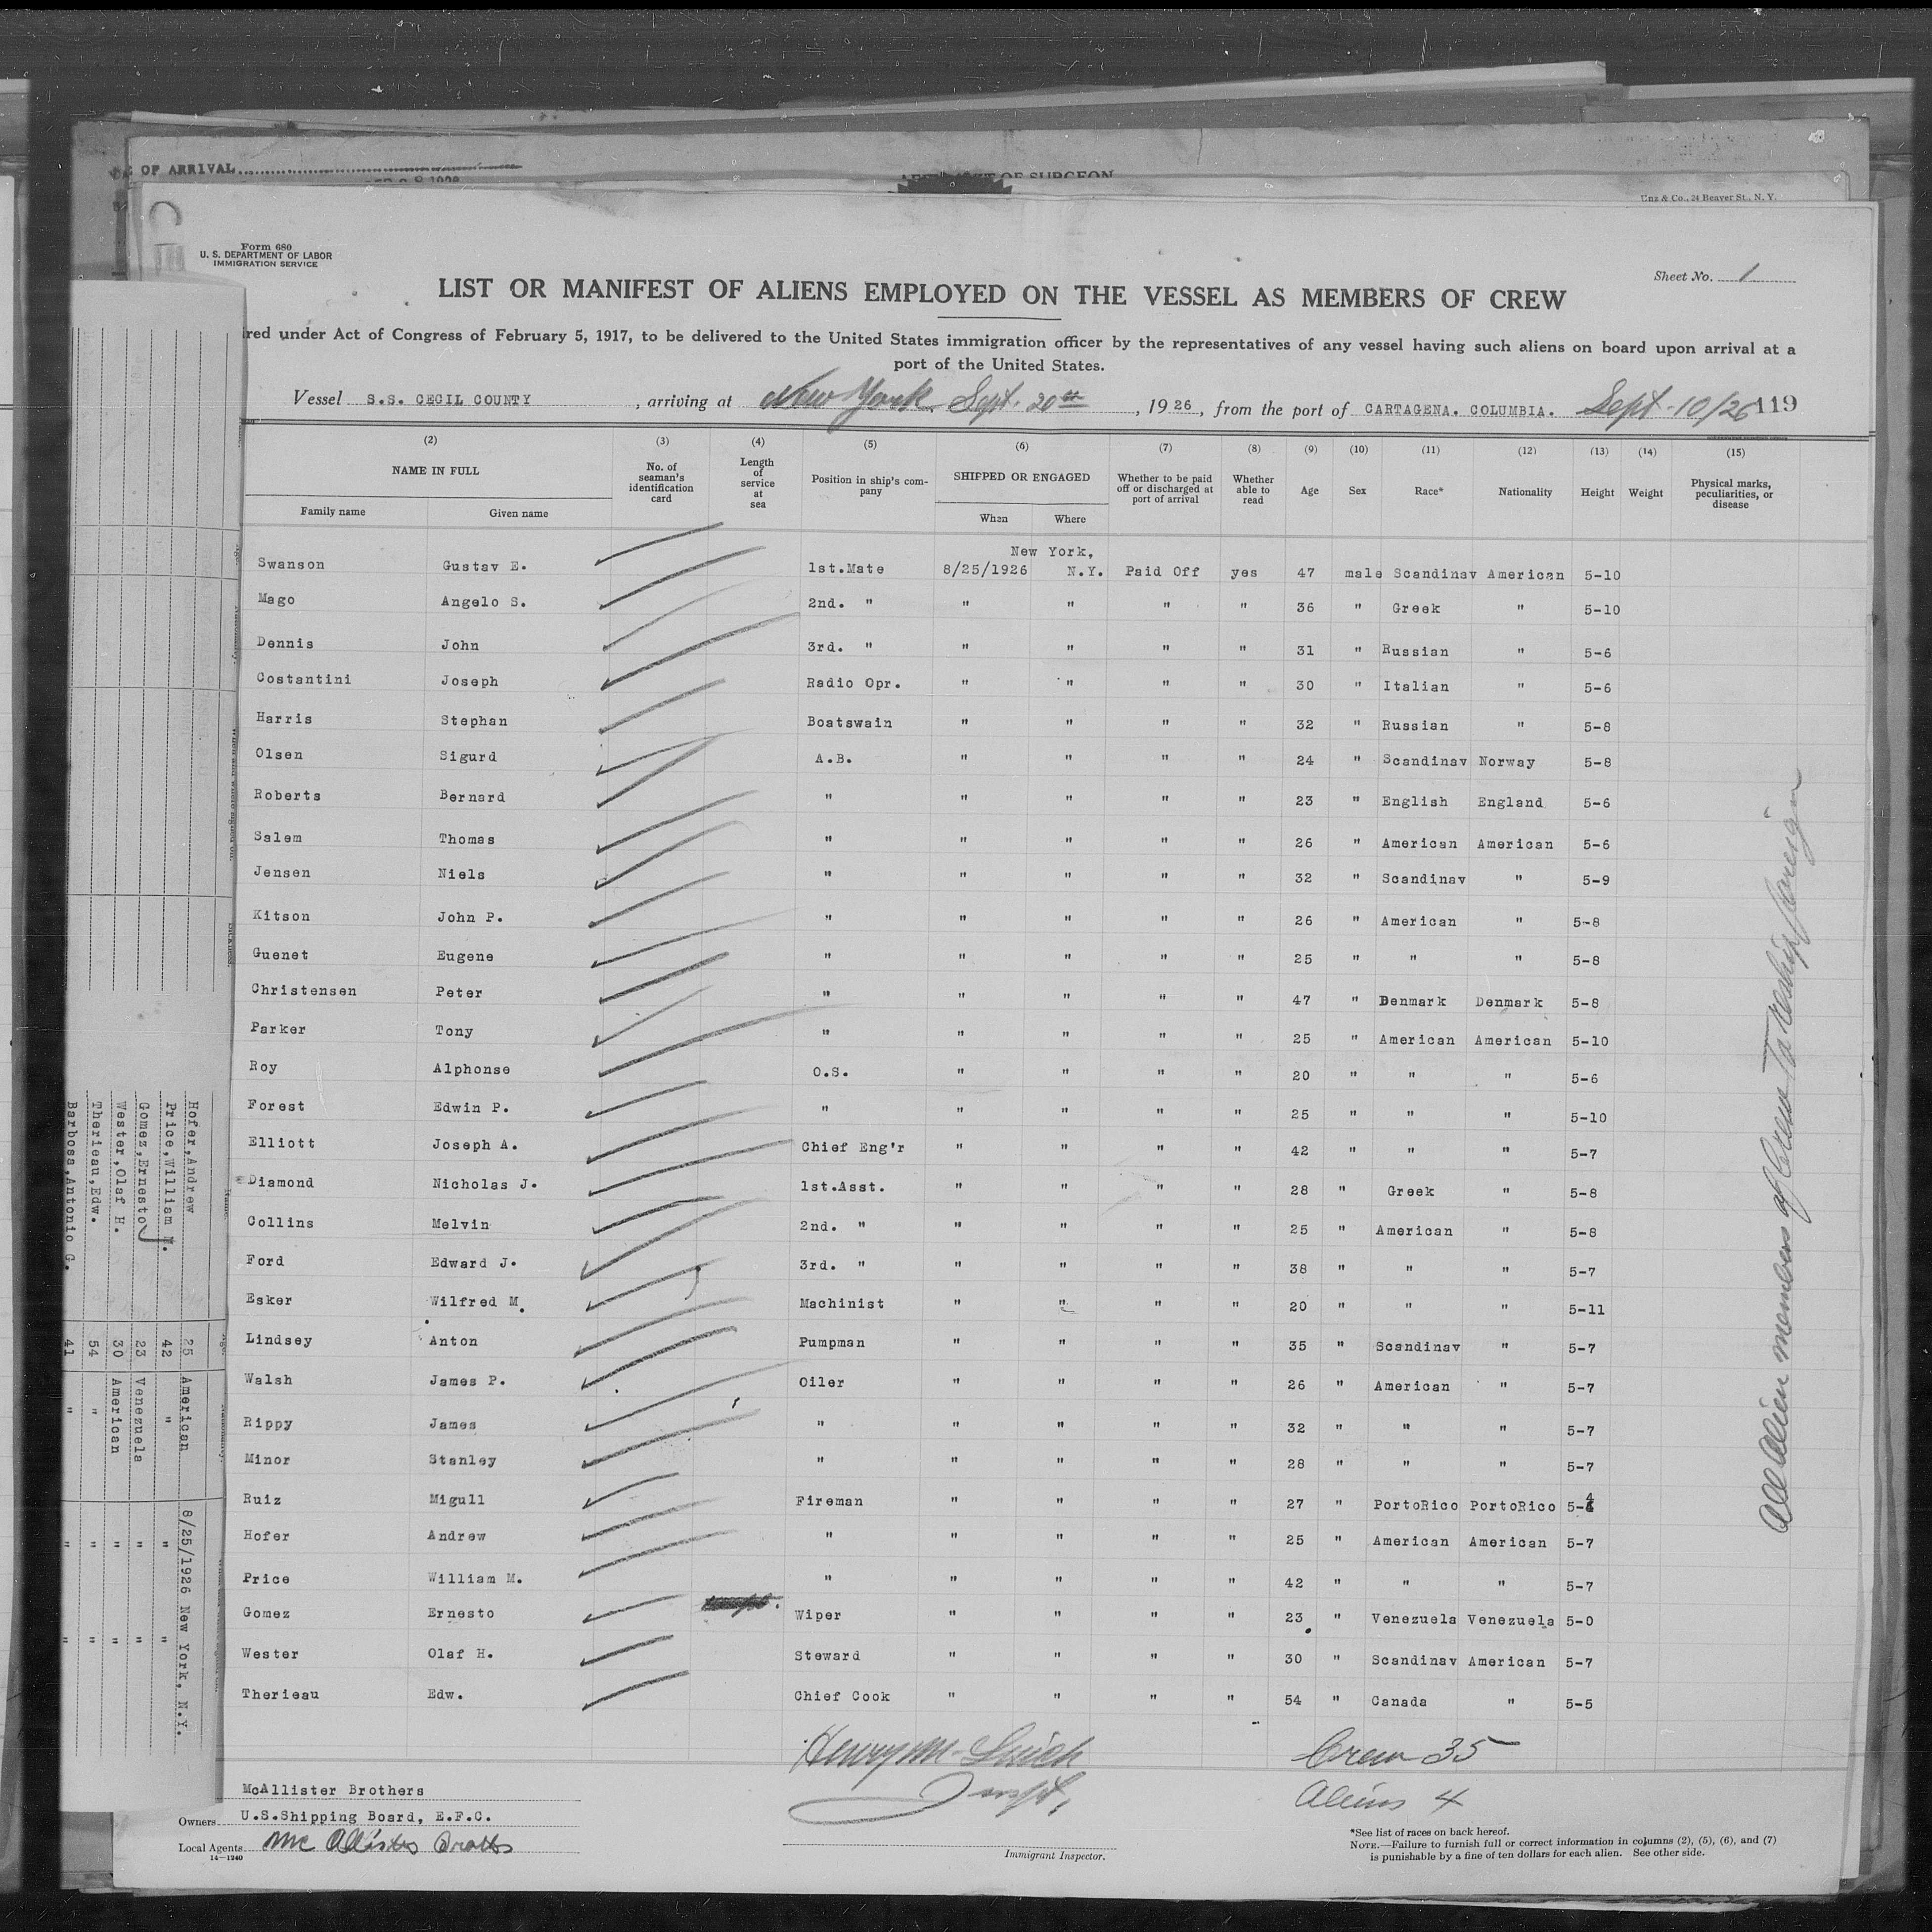 OF ARRIVAL
OF SURGEON
& Co., 24 Beaver St., N. Y.
Form 680
U. S. DEPARTMENT OF LABOR
IMMIGRATION SERVICE
Sheet No. 1
LIST OR MANIFEST OF ALIENS EMPLOYED ON THE VESSEL AS MEMBERS OF CREW
red under Act of Congress of February 5, 1917, to be delivered to the United States immigration officer by the representatives of any vessel having such aliens on board upon arrival at a
port of the United States.
Vessel S.S. CECIL COUNTY, arriving at New York Sept. 20th, 1926, from the port of CARTAGENA. COLUMBIA. Sept-10/26 119
(2) (3) (4) (5) (6) (7) (8) (9) (10) (11) (12) (13) (14) (15)
NAME IN FULL No. of seaman's identification card Length of service at sea Position in ship's company SHIPPED OR ENGAGED Whether to be paid off or discharged at port of arrival Whether able to read Age Sex Race* Nationality Height Weight Physical marks, peculiarities, or disease
Family name Given name When Where
New York,
Swanson Gustav E. 1st.Mate 8/25/1926 N.Y. Paid Off yes 47 male Scandinav American 5-10
Mago Angelo S. 2nd. " " " " " 36 " Greek " 5-10
Dennis John 3rd. " " " " " 31 " Russian " 5-6
Costantini Joseph Radio Opr. " " " " 30 " Italian " 5-6
Harris Stephan Boatswain " " " " 32 " Russian " 5-8
Olsen Sigurd A.B. " " " " 24 " Scandinav Norway 5-8
Roberts Bernard " " " " " 23 " English England 5-6
Salem Thomas " " " " " 26 " American American 5-6
Jensen Niels " " " " " 32 " Scandinav " 5-9
Kitson John P. " " " " " 26 " American " 5-8
Guenet Eugene " " " " " 25 " " " 5-8
Christensen Peter " " " " " 47 " Denmark Denmark 5-8
Parker Tony " " " " " 25 " American American 5-10
Roy Alphonse O.S. " " " " 20 " " " 5-6
Forest Edwin P. " " " " " 25 " " " 5-10
Elliott Joseph A. Chief Eng'r " " " " 42 " " " 5-7
Diamond Nicholas J. 1st.Asst. " " " " 28 " Greek " 5-8
Collins Melvin 2nd. " " " " " 25 " American " 5-8
Ford Edward J. 3rd. " " " " " 38 " " " 5-7
Esker Wilfred M. Machinist " " " " 20 " " " 5-11
Lindsey Anton Pumpman " " " " 35 " Scandinav " 5-7
Walsh James P. Oiler " " " " 26 " American " 5-7
Rippy James " " " " " 32 " " " 5-7
Minor Stanley " " " " " 28 " " " 5-7
Ruiz Migull Fireman " " " " 27 " PortoRico PortoRico 5-4
Hofer Andrew " " " " " 25 " American American 5-7
Price William M. " " " " " 42 " " " 5-7
Gomez Ernesto Wiper " " " " 23 " Venezuela Venezuela 5-0
Wester Olaf H. Steward " " " " 30 " Scandinav American 5-7
Therieau Edw. Chief Cook " " " " 54 " Canada " 5-5
All Alien members of Crew To Reship foreign
Crew 35
Aliens 4
Inspt.
McAllister Brothers
Owners U.S.Shipping Board, E.F.C.
Local Agents Mc Allister
14-1240
Immigrant Inspector.
*See list of races on back hereof.
NOTE.—Failure to furnish full or correct information in columns (2), (5), (6), and (7)
is punishable by a fine of ten dollars for each alien. See other side.
Hofer,Andrew 25 American 8/25/1926 New York, N.Y.
Price,William M. 42 " " "
Gomez,Ernesto 23 Venezuela " "
Wester,Olaf H. 30 American " "
Therieau,Edw. 54 " " "
Barbosa,Antonio G. 41 " " "